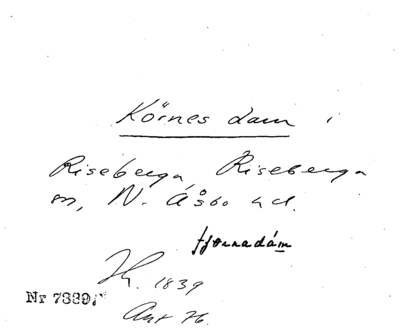 Körnes dam i
Riseberga, Riseberga
sn, N. Åsbo hd.
tjonnadám
Jh. 1839
Nr 7889.
Ant 76.